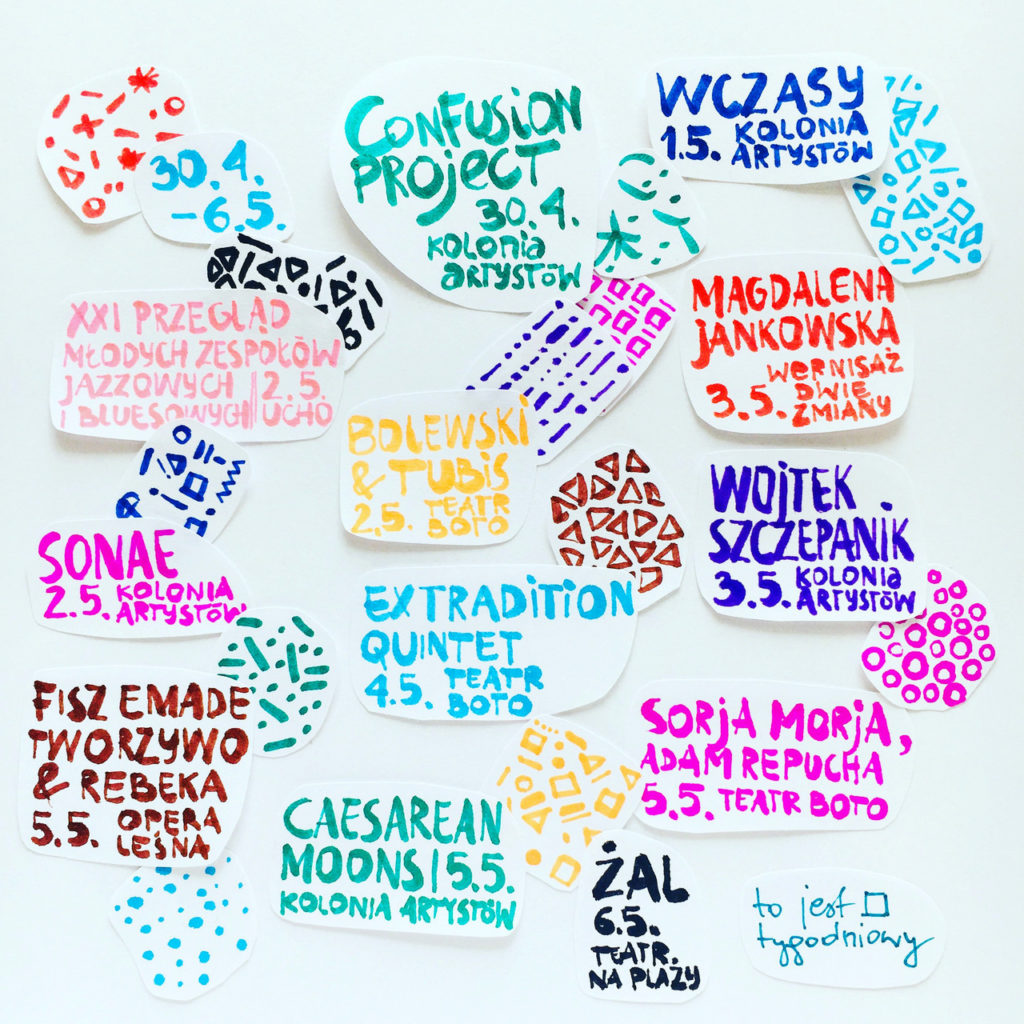 30.4.
-6.5.
CONFUSION
PROJECT
30.4.
KOLONIA
ARTYSTÓW
WCZASY
1.5. KOLONIA
ARTYSTÓW
XXI PRZEGLĄD
MŁODYCH ZESPOŁÓW
JAZZOWYCH | 2.5.
I BLUESOWYCH | UCHO
MAGDALENA
JANKOWSKA
WERNISAŻ
3.5. DWIE
ZMIANY
BOLEWSKI
& TUBIS
2.5. TEATR
BOTO
WOJTEK
SZCZEPANIK
3.5. KOLONIA
ARTYSTÓW
SONAE
2.5. KOLONIA
ARTYSTÓW
EXTRADITION
QUINTET
4.5. TEATR
BOTO
FISZ EMADE
TWORZYWO
& REBEKA
5.5. OPERA
LEŚNA
SORJA MORJA,
ADAM REPUCHA
5.5. TEATR BOTO
CAESAREAN
MOONS | 5.5.
KOLONIA ARTYSTÓW
ŻAL
6.5.
TEATR.
NA PLAŻY
to jest
tygodniowy